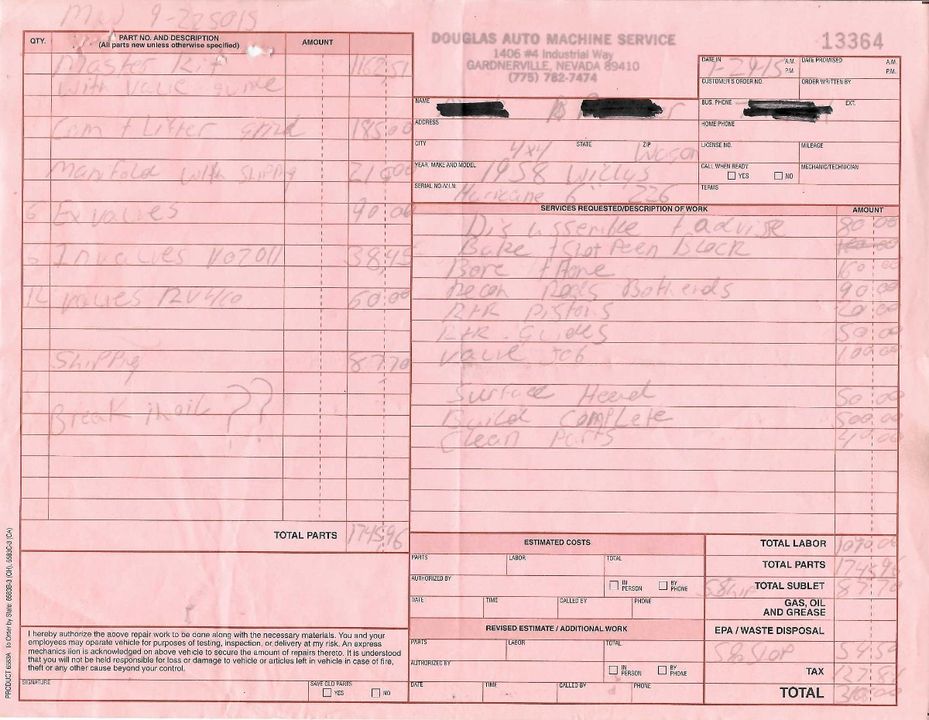 QTY.
PART NO. AND DESCRIPTION
(All parts new unless otherwise specified)
AMOUNT
Master Kit
with valve guide
Cam + Lifter grind 185.00
Manifold with shippy
6 Ex valves 90.00
6 In valves V02011 38.45
12 valves RV460 60.00
Shippig 87.70
Break in oil ??
TOTAL PARTS 1745.96
I hereby authorize the above repair work to be done along with the necessary materials. You and your
employees may operate vehicle for purposes of testing, inspection, or delivery at my risk. An express
mechanics lien is acknowledged on above vehicle to secure the amount of repairs thereto. It is understood
that you will not be held responsible for loss or damage to vehicle or articles left in vehicle in case of fire,
theft or any other cause beyond your control.
SIGNATURE
SAVE OLD PARTS
YES NO
DOUGLAS AUTO MACHINE SERVICE
1406 #4 Industrial Way
GARDNERVILLE, NEVADA 89410
(775) 782-7474
13364
DATE IN A.M. P.M.
DATE PROMISED A.M. P.M.
CUSTOMER'S ORDER NO.
ORDER WRITTEN BY
NAME
BUS. PHONE EXT.
ADDRESS
HOME PHONE
CITY STATE ZIP
LICENSE NO. MILEAGE
4x4 Wagon
YEAR, MAKE AND MODEL 1958 Willys
CALL WHEN READY
YES NO
MECHANIC/TECHNICIAN
SERIAL NO./V.I.N. Hurricane 6 226
TERMS
SERVICES REQUESTED/DESCRIPTION OF WORK AMOUNT
Disassemble + advise 80.00
Bake + Shot Peen Block
Bore + Hone 160.00
Recon Rods Both ends 90.00
R+R Pistons 60.00
R+R. Guides 50.00
Valve Job 100.00
Surface Head 50.00
Build Complete 500.00
Clean Parts 40.00
ESTIMATED COSTS
PARTS LABOR TOTAL
AUTHORIZED BY
IN PERSON BY PHONE
DATE TIME CALLED BY PHONE
REVISED ESTIMATE / ADDITIONAL WORK
PARTS LABOR TOTAL
AUTHORIZED BY
IN PERSON BY PHONE
DATE TIME CALLED BY PHONE
TOTAL LABOR
TOTAL PARTS 1745.96
TOTAL SUBLET 87.70
GAS, OIL
AND GREASE
EPA / WASTE DISPOSAL
TAX
TOTAL
PRODUCT 6583A To Order by State: 6583B-3 (OH), 6583C-3 (CA)